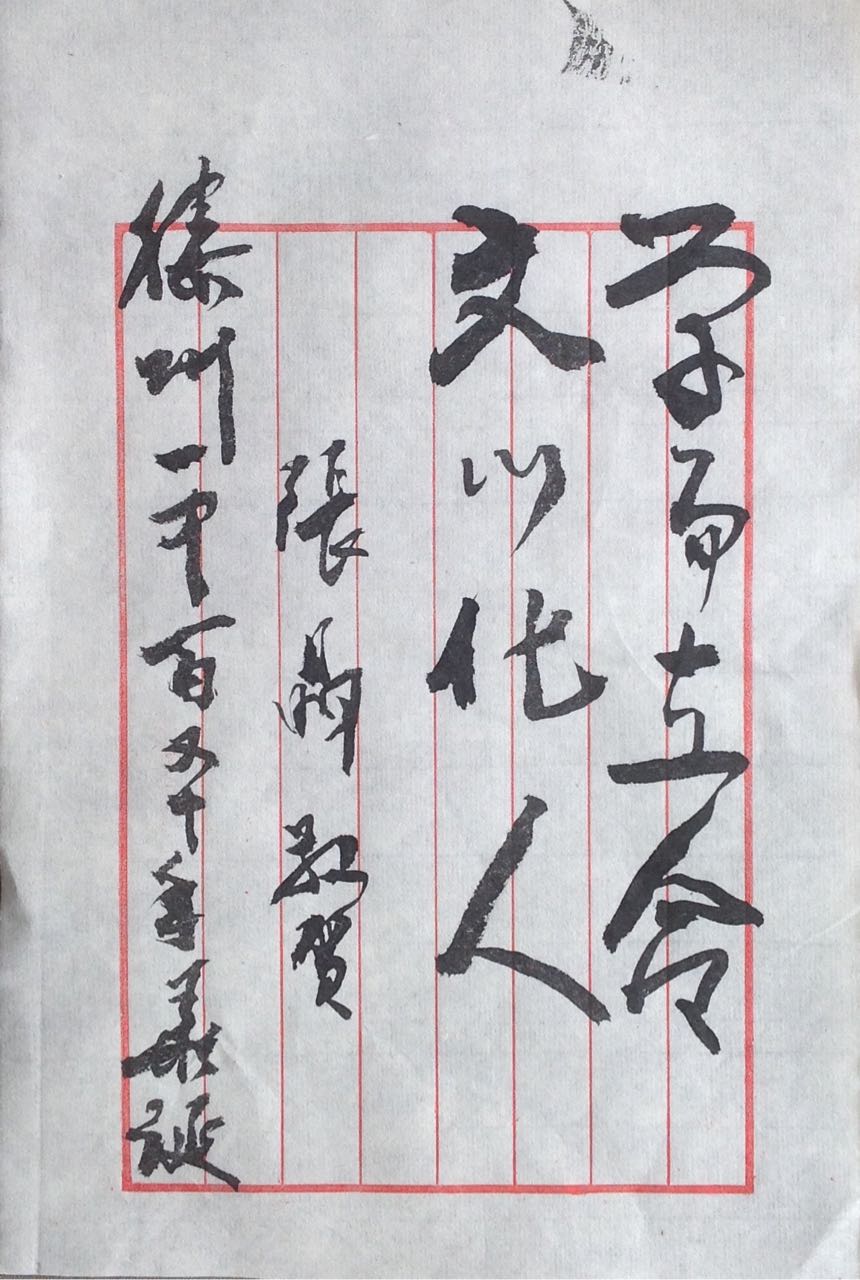 学而立命
文以化人
張 敬賀
滕州一中百又十年華誕